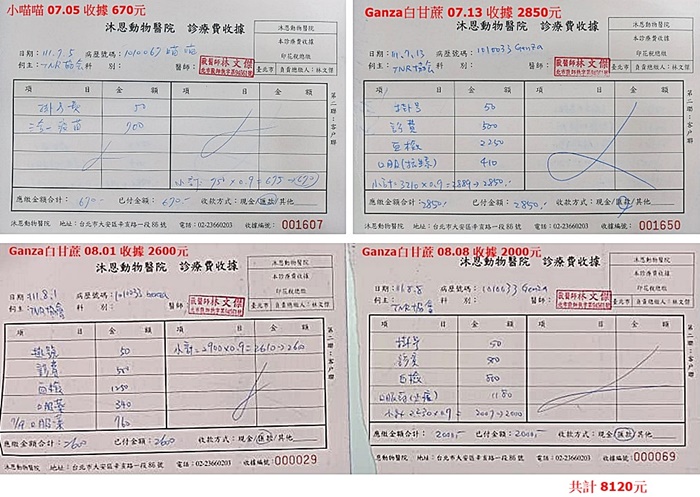 小喵喵 07.05 收據 670元
沐恩動物醫院 診療費收據
沐恩動物醫院
本診療費收據
印花稅總繳
臺北市 負責總繳人:林文傑
日期:111.7.5 病歷號碼:1010067 喵喵
飼主:TNR協會 科別: 醫師:
獸醫師林文傑
項目 金額 項目 金額
掛號費 50
三合一疫苗 700
小計:750×0.9=675→670
應繳金額合計:670- 已付金額:670- 收款方式:現金/匯款/其他
沐恩動物醫院 地址:台北市大安區辛亥路一段86號 電話:02-23660203 收據編號:001607
第二聯:客戶聯
Ganza白甘蔗 07.13 收據 2850元
沐恩動物醫院 診療費收據
沐恩動物醫院
本診療費收據
印花稅總繳
臺北市 負責總繳人:林文傑
日期:111.7.13 病歷號碼:1010633 Ganza
飼主:TNR協會 科別: 醫師:
獸醫師林文傑
項目 金額 項目 金額
掛號 50
診費 500
血檢 2250
口服 410
小計=3210×0.9=2889→2850.
應繳金額合計:2850- 已付金額:2850- 收款方式:現金/匯款/其他
沐恩動物醫院 地址:台北市大安區辛亥路一段86號 電話:02-23660203 收據編號:001650
第二聯:客戶聯
Ganza白甘蔗 08.01 收據 2600元
沐恩動物醫院 診療費收據
沐恩動物醫院
本診療費收據
印花稅總繳
臺北市 負責總繳人:林文傑
日期:111.8.1 病歷號碼:1010633 Ganza
飼主:TNR協會 科別: 醫師:
獸醫師林文傑
項目 金額 項目 金額
掛號 50 小計=2900×0.9=2610→2600
診費 500
血檢 1250
口服藥 340
7/19 口服藥 760
應繳金額合計:2600 已付金額:2600 收款方式:現金/匯款/其他
沐恩動物醫院 地址:台北市大安區辛亥路一段86號 電話:02-23660203 收據編號:000029
第二聯:客戶聯
Ganza白甘蔗 08.08 收據 2000元
沐恩動物醫院 診療費收據
沐恩動物醫院
本診療費收據
印花稅總繳
臺北市 負責總繳人:林文傑
日期:111.8.8 病歷號碼:1010633 Ganza
飼主:TNR協會 科別: 醫師:
獸醫師林文傑
項目 金額 項目 金額
掛號 50
診費 500
血檢 500
口服 1180
小計 2230×0.9= 2007→2000
應繳金額合計:2000- 已付金額:2000- 收款方式:現金/匯款/其他
沐恩動物醫院 地址:台北市大安區辛亥路一段86號 電話:02-23660203 收據編號:000069
第二聯:客戶聯
共計 8120元